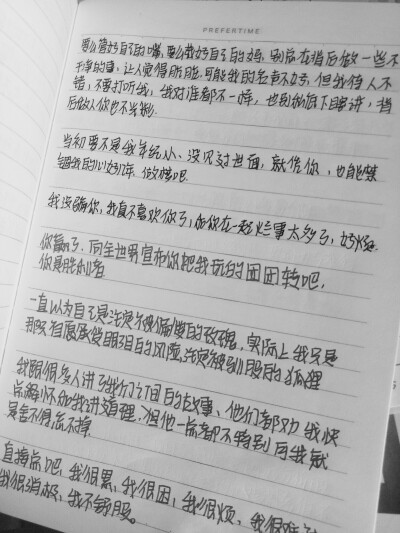 PREFERTIME
要么管好自己的嘴，要么戴好自己的妈，别总在背后做一些不
干净的事，让人觉得肮脏，可能我的名声不好，但我待人不
错，不要打听我，我对谁都不一样，也别私底下议论，背
后做人你也不光彩。
当初要不是我年纪小、没见过世面，就凭你，也能禁
我的心好几年，做梦吧
我没骗你，我真不喜欢你了，和你在一起烂事太多了，好烦。
你赢了，向全世界宣布你把我玩的团团转吧，
你是胜利者
一直以为自己是注定被偏爱的玫瑰，实际上我只是
那只自愿承受的风险，注定被驯服的狐狸
我跟很多人讲了我们之间的故事、他们都劝我快
点解怀和我讲道理、但他一点都不特别可我就
是舍不得忘不掉
直接点吧，我很累，我很困，我很烦，我很难
我很消极，我不舒服。